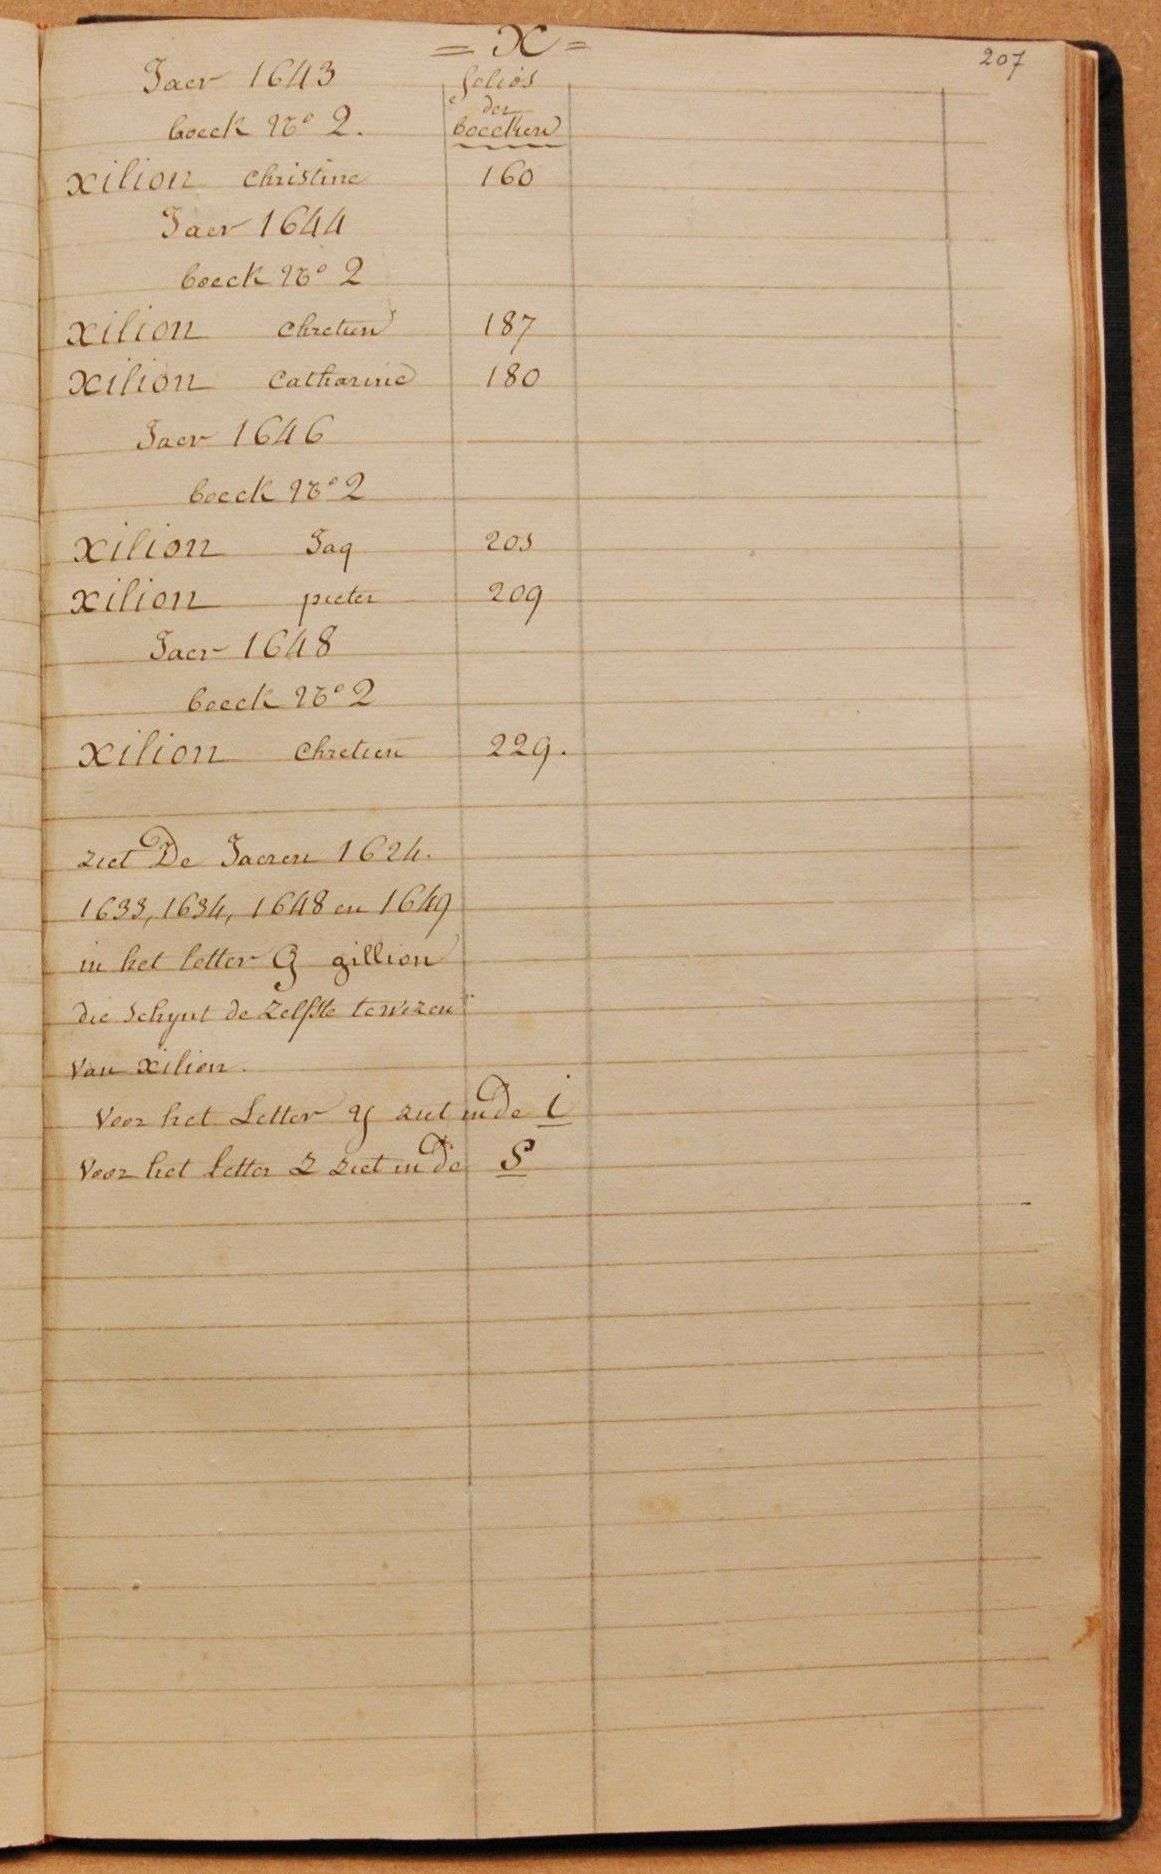 = X =
207
Jaer 1643
folios
der
boecken
boeck No 2.
xilion christine 160
Jaer 1644
boeck No 2
xilion chretien 187
xilion catharine 180
Jaer 1646
boeck No 2
xilion Jaq 205
xilion pieter 209
Jaer 1648
boeck No 2
xilion chretien 229.
ziet De Jaeren 1624.
1633, 1634, 1648 en 1649
in het letter G gillion
die schynt de zelfste te wezen
van xilion.
Voor het Letter y ziet in De i
Voor het letter Z ziet in De S